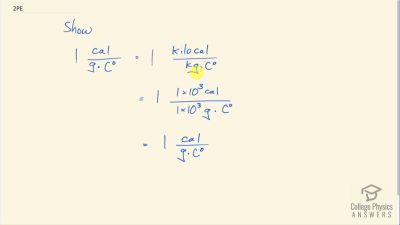 2PE
Show
1 cal/g·C° = 1 kilocal/kg·C°
= 1 1×10³ cal/1×10³ g·C°
= 1 cal/g·C°
College Physics
ANSWERS